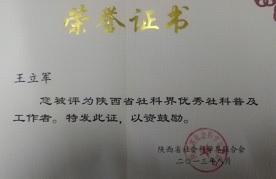 荣誉证书
王立军
您被评为陕西省社科界优秀社科普及
工作者。特发此证，以资鼓励。
陕西省社会科学界联合会
二〇一三年八月